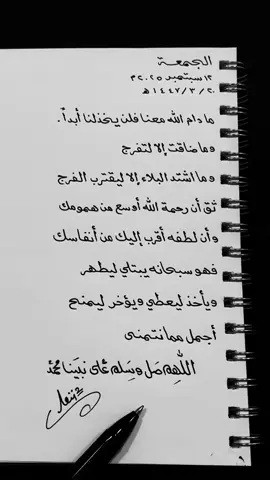 الجمعة
١٢ سبتمبر ٢٠٢٥ م
٢٠ / ٣ / ١٤٤٧ هـ
ما دام الله معنا فلن يخذلنا أبداً .
وما ضاقت إلا لتفرج
وما اشتد البلاء إلا ليقترب الفرج
ثق أن رحمة الله أوسع من همومك
وأن لطفه أقرب إليك من أنفاسك
فهو سبحانه يبتلي ليطهر
ويأخذ ليعطي ويؤخر ليمنح
أجمل مما نتمنى
اللهم صل وسلم على نبينا محمد